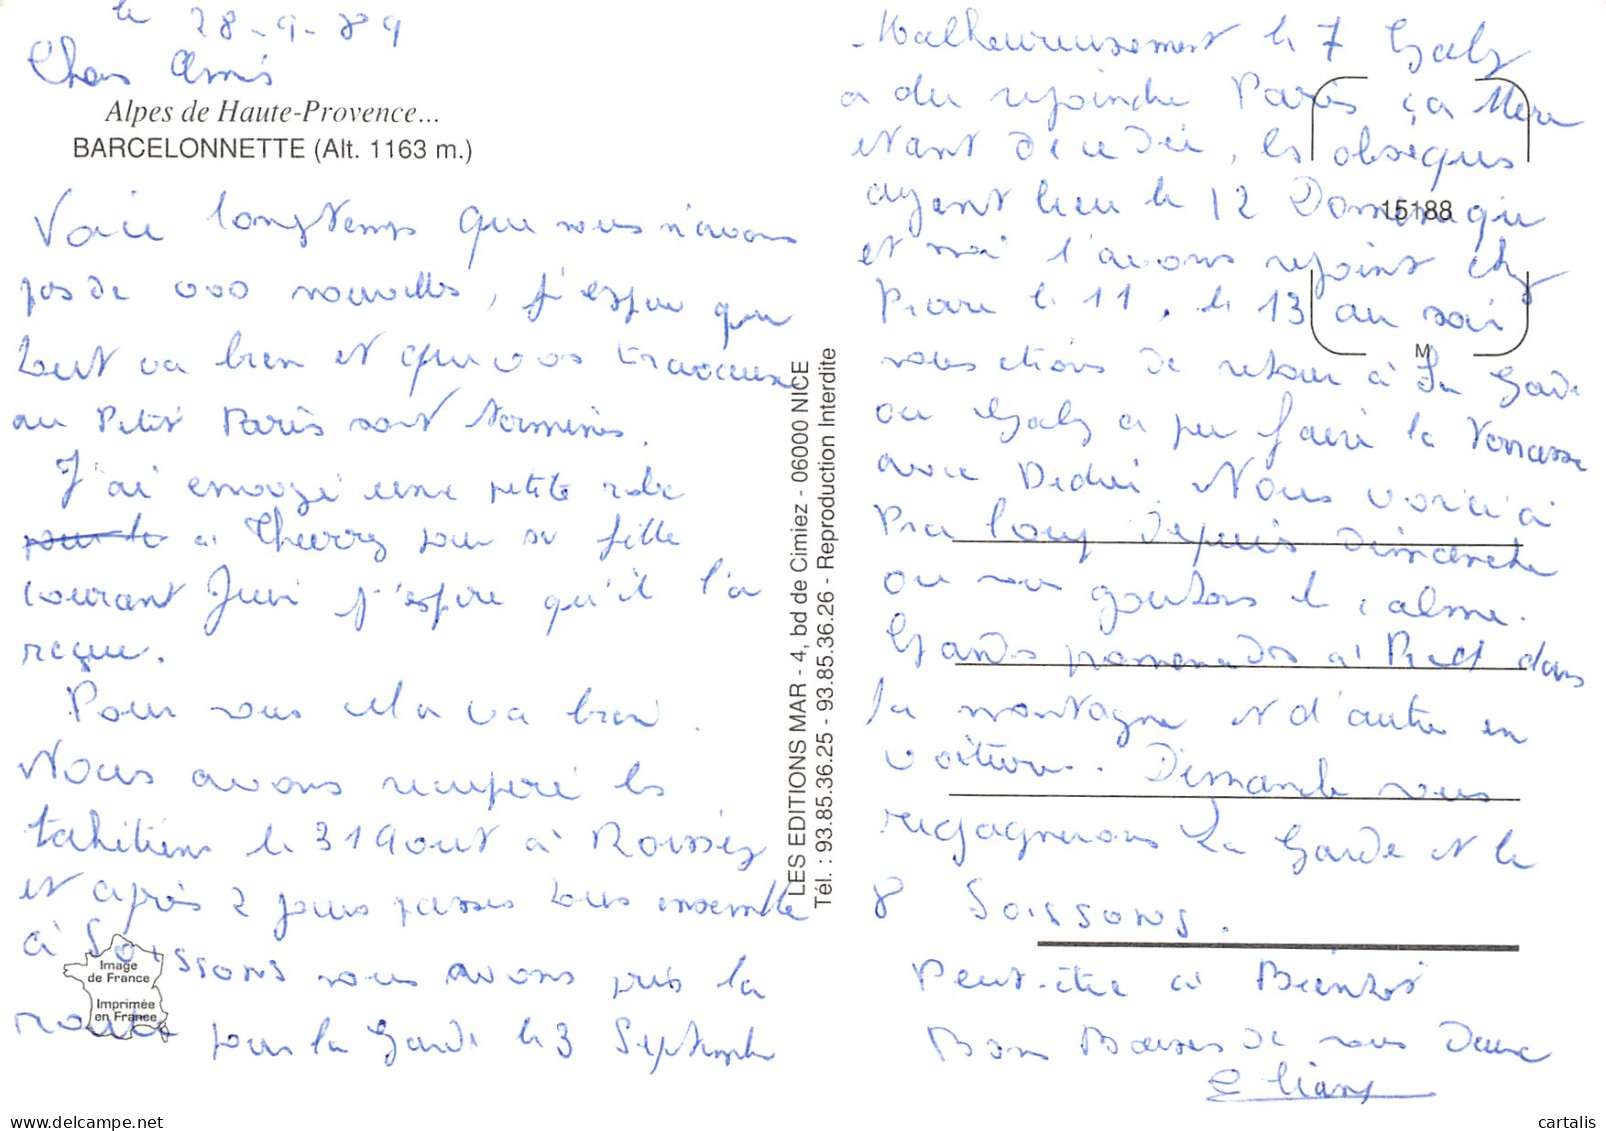 le 28-9-89
Chers Amis
Alpes de Haute-Provence...
BARCELONNETTE (Alt. 1163 m.)
Voici longtemps que nous n'avons
pas de vos nouvelles, j'espère que
tout va bien et que vos travaux
au Petit Paris sont terminés.
J'ai envoyé une petite robe
pour le à Thierry pour sa fille
courant Juin j'espère qu'il l'a
reçue.
Pour nous cela va bien.
Nous avons récupéré les
tahitiens le 31 Aout à Roissy
et après 2 jours passés tous ensemble
à Soissons nous avons pris la
route pour la Garde le 3 Septembre
Image
de France
Imprimée
en France
LES EDITIONS MAR - 4, bd de Cimiez - 06000 NICE
Tél. : 93.85.36.25 - 93.85.36.26 - Reproduction Interdite
Malheureusement le 7 Gaby
a du rejoindre Paris ça Mère
étant décédée, les obsèques
ayant lieu le 12 Dominique
15188
et moi l'avons rejoint chez
Pierre le 11, le 13 au soir
M
nous étions de retour à La Garde
ou Gaby a pu faire la terrasse
avec Dédé. Nous voici à
Pra loup depuis Dimanche
ou nous goutons le calme.
Grandes promenades à Pied dans
la montagne et d'autres en
voiture. Dimanche nous
regagnerons La Garde et le
8 Soissons.
Peut-être à Bientôt
Bons Baisers de nous Deux
Eliane
cartalis